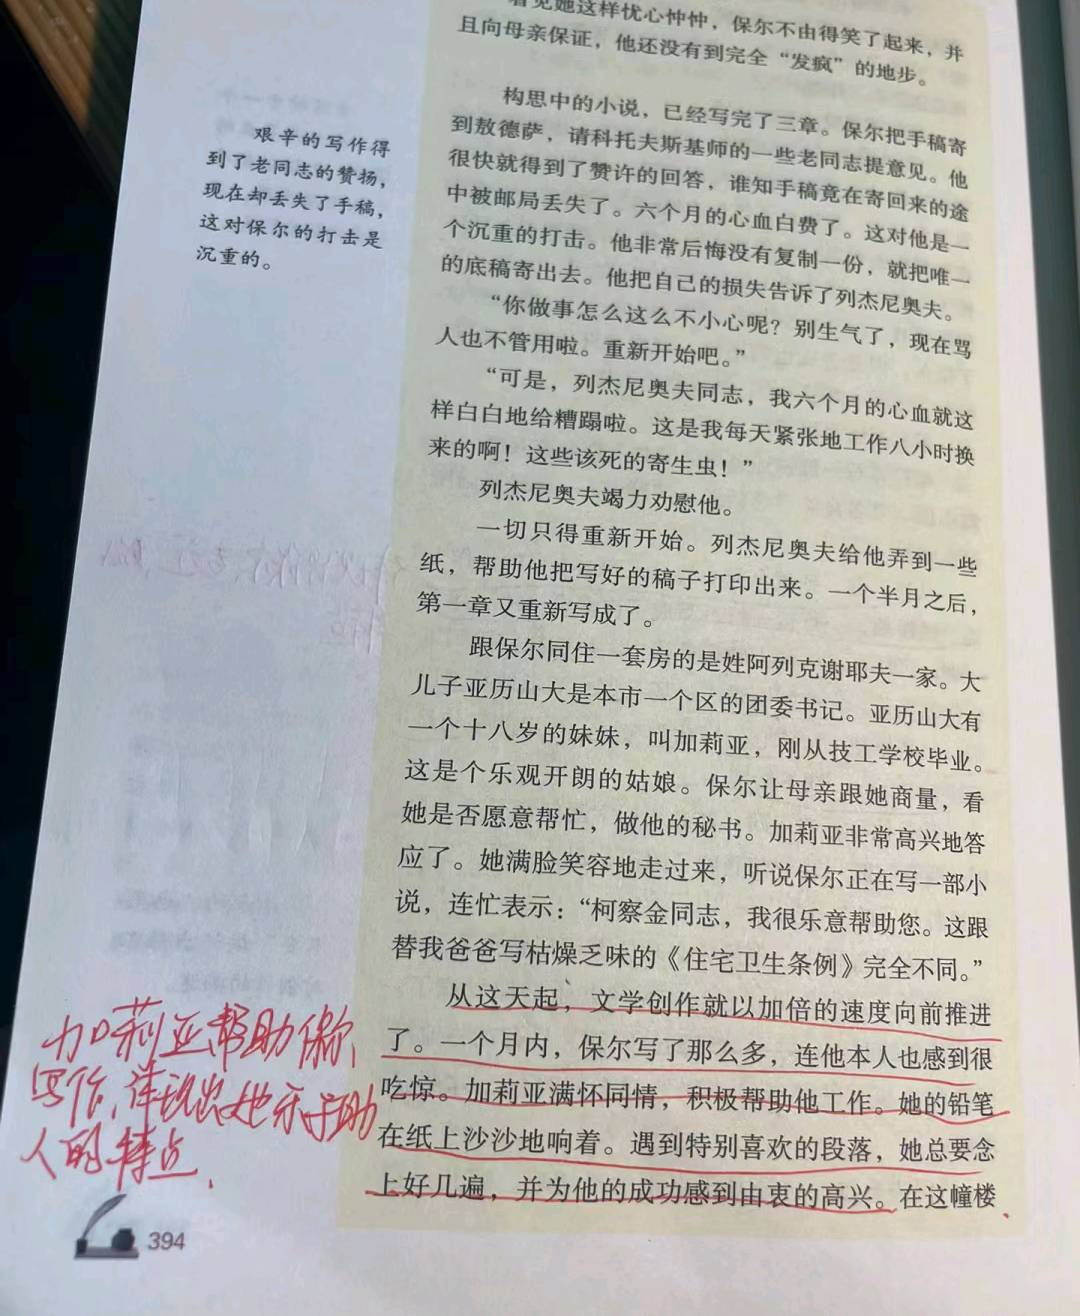 看见她这样忧心忡忡，保尔不由得笑了起来，并
且向母亲保证，他还没有到完全“发疯”的地步。
构思中的小说，已经写完了三章。保尔把手稿寄
到敖德萨，请科托夫斯基师的一些老同志提意见。他
很快就得到了赞许的回答，谁知手稿竟在寄回来的途
中被邮局丢失了。六个月的心血白费了。这对他是一
个沉重的打击。他非常后悔没有复制一份，就把唯一
的底稿寄出去。他把自己的损失告诉了列杰尼奥夫。
“你做事怎么这么不小心呢？别生气了，现在骂
人也不管用啦。重新开始吧。”
“可是，列杰尼奥夫同志，我六个月的心血就这
样白白地给糟蹋啦。这是我每天紧张地工作八小时换
来的啊！这些该死的寄生虫！”
列杰尼奥夫竭力劝慰他。
一切只得重新开始。列杰尼奥夫给他弄到一些
纸，帮助他把写好的稿子打印出来。一个半月之后，
第一章又重新写成了。
跟保尔同住一套房的是姓阿列克谢耶夫一家。大
儿子亚历山大是本市一个区的团委书记。亚历山大有
一个十八岁的妹妹，叫加莉亚，刚从技工学校毕业。
这是个乐观开朗的姑娘。保尔让母亲跟她商量，看
她是否愿意帮忙，做他的秘书。加莉亚非常高兴地答
应了。她满脸笑容地走过来，听说保尔正在写一部小
说，连忙表示：“柯察金同志，我很乐意帮助您。这跟
替我爸爸写枯燥乏味的《住宅卫生条例》完全不同。”
从这天起，文学创作就以加倍的速度向前推进
了。一个月内，保尔写了那么多，连他本人也感到很
吃惊。加莉亚满怀同情，积极帮助他工作。她的铅笔
在纸上沙沙地响着。遇到特别喜欢的段落，她总要念
上好几遍，并为他的成功感到由衷的高兴。在这幢楼
艰辛的写作得
到了老同志的赞扬，
现在却丢失了手稿，
这对保尔的打击是
沉重的。
加莉亚帮助保尔
写作，体现出她乐于助
人的特点.
394